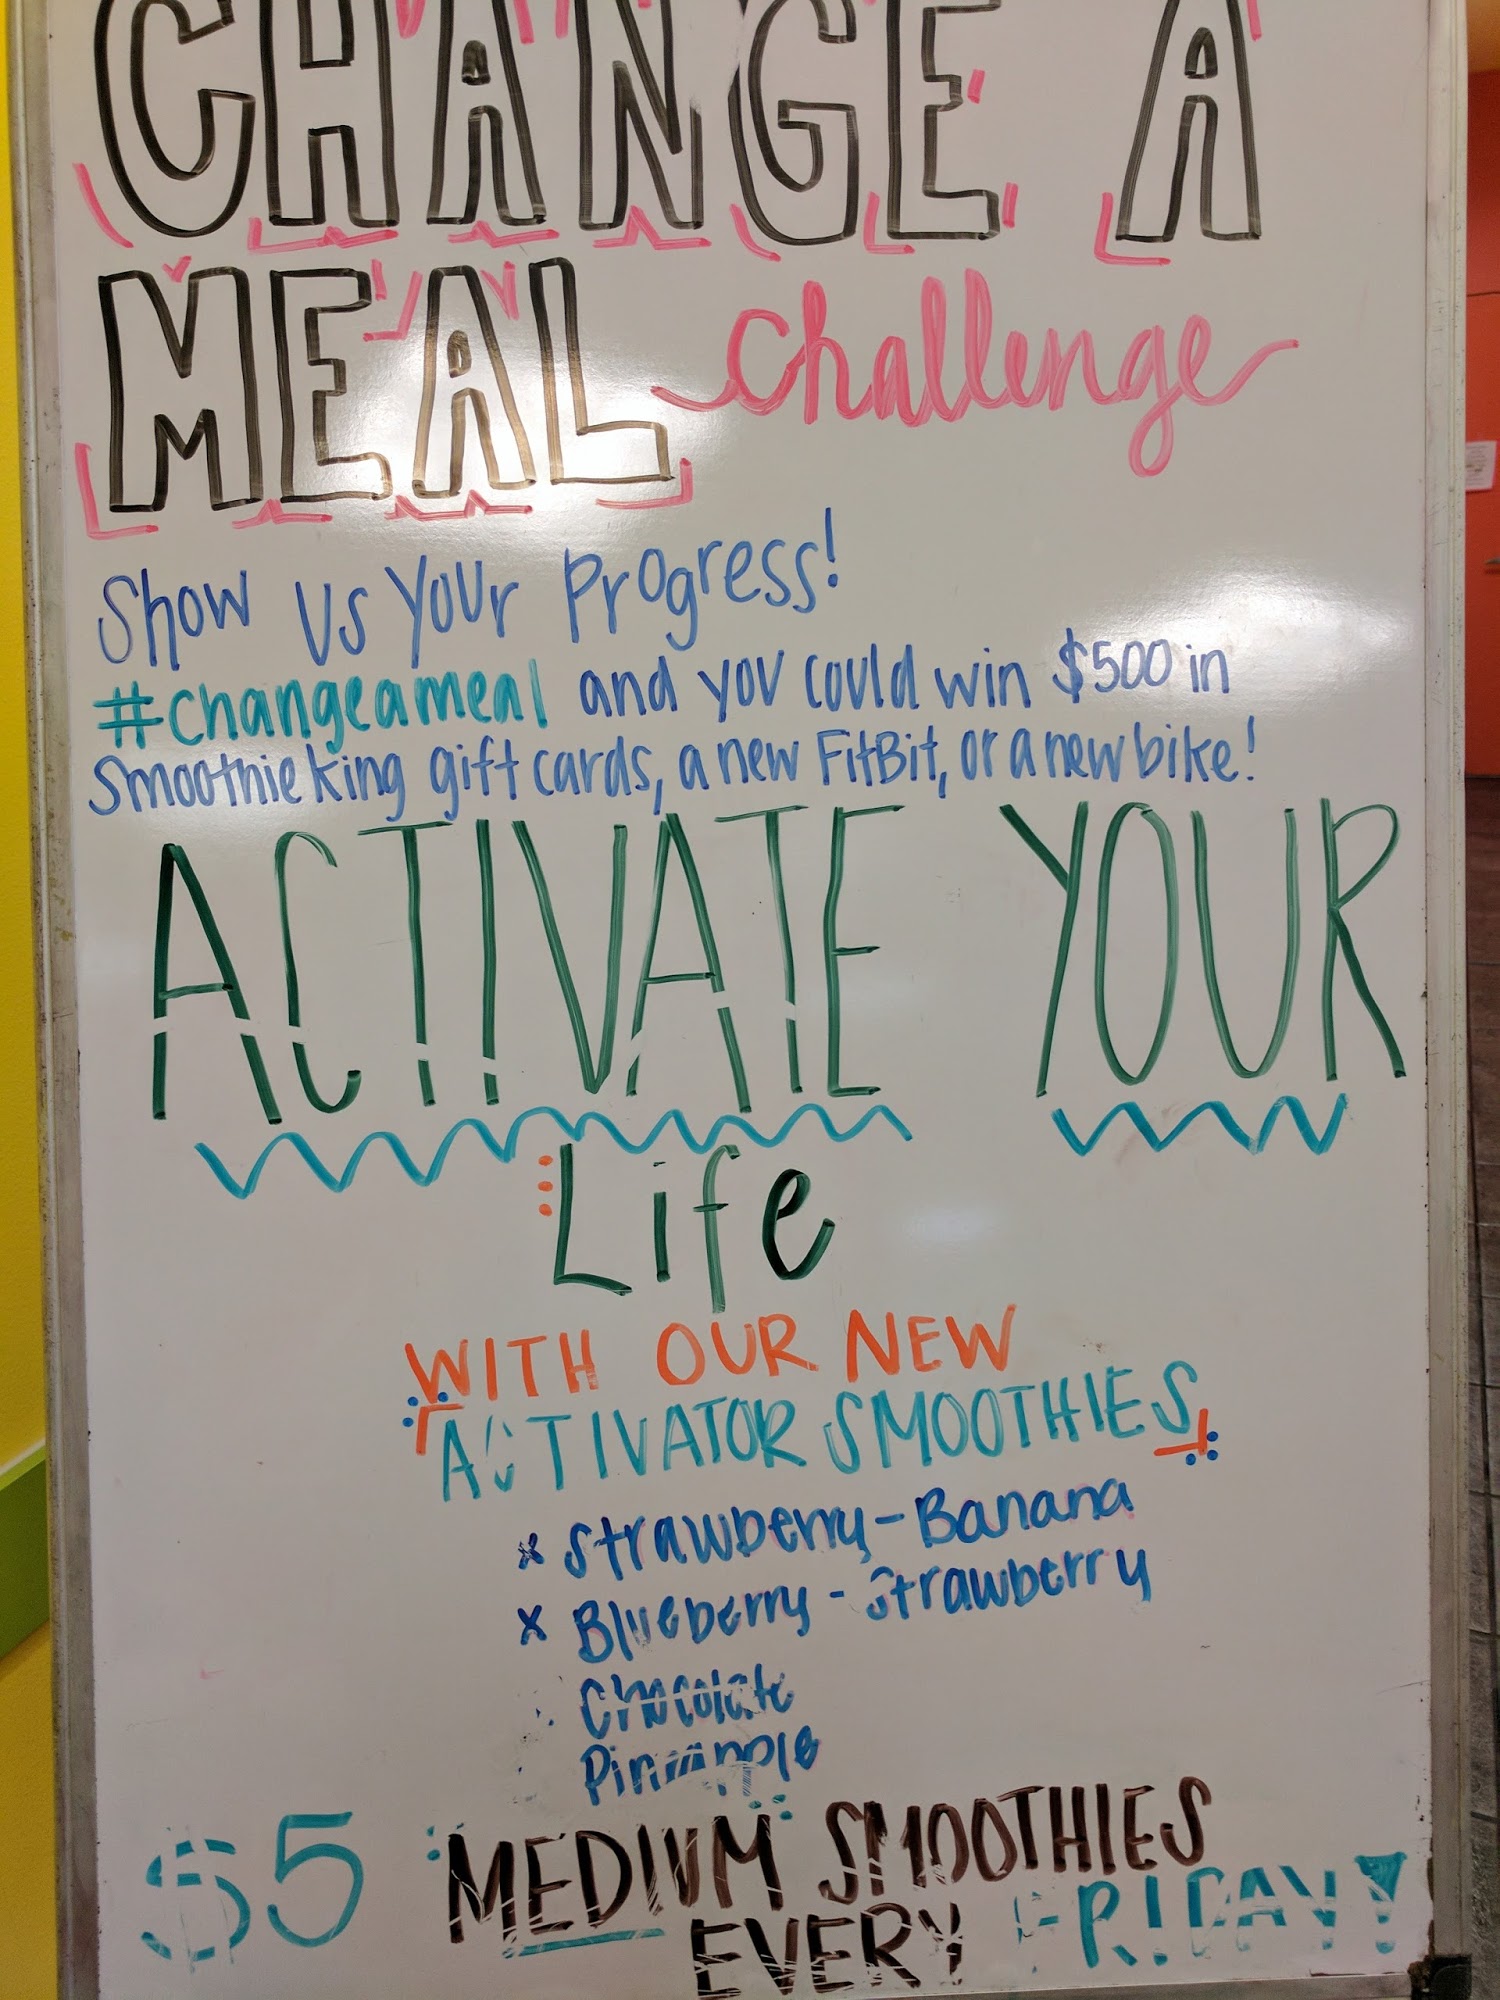 CHANGE A
MEAL challenge
Show us your Progress!
#changeameal and you could win $500 in
Smoothie king gift cards, a new FitBit, or a new bike!
ACTIVATE YOUR
Life
WITH OUR NEW
ACTIVATOR SMOOTHIES
x Strawberry-Banana
x Blueberry-Strawberry
Chocolate
Pineapple
$5 MEDIUM SMOOTHIES
EVERY FRIDAY!